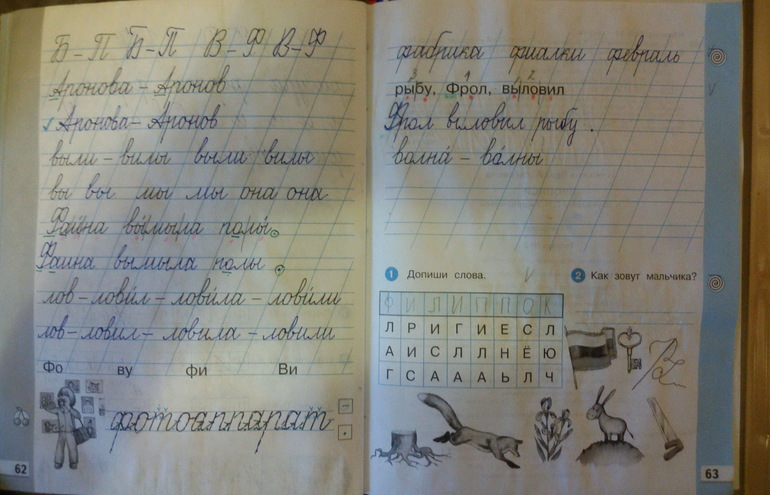 Б – П Б – П В – Ф В – Ф
Аронова – Аронов
Аронова – Аронов
выли – вилы выли вилы
вы вы мы мы она она
Фаина вы́мыла полы́.
Фаина вымыла полы.
лов – лови́л – лови́ла – лови́ли
лов – ловил – ловила – ловили
Фо ву фи Ви
фотоаппарат
62
фабрика фиалки февраль
3 1 2
рыбу, Фрол, выловил
Фрол выловил рыбу.
волна́ – во́лны
1 Допиши слова. 2 Как зовут мальчика?
Ф И Л И П П О К
Л Р И Г И Е С Л
А И С Л Л Н Ё Ю
Г С А А А Ь Л Ч
63